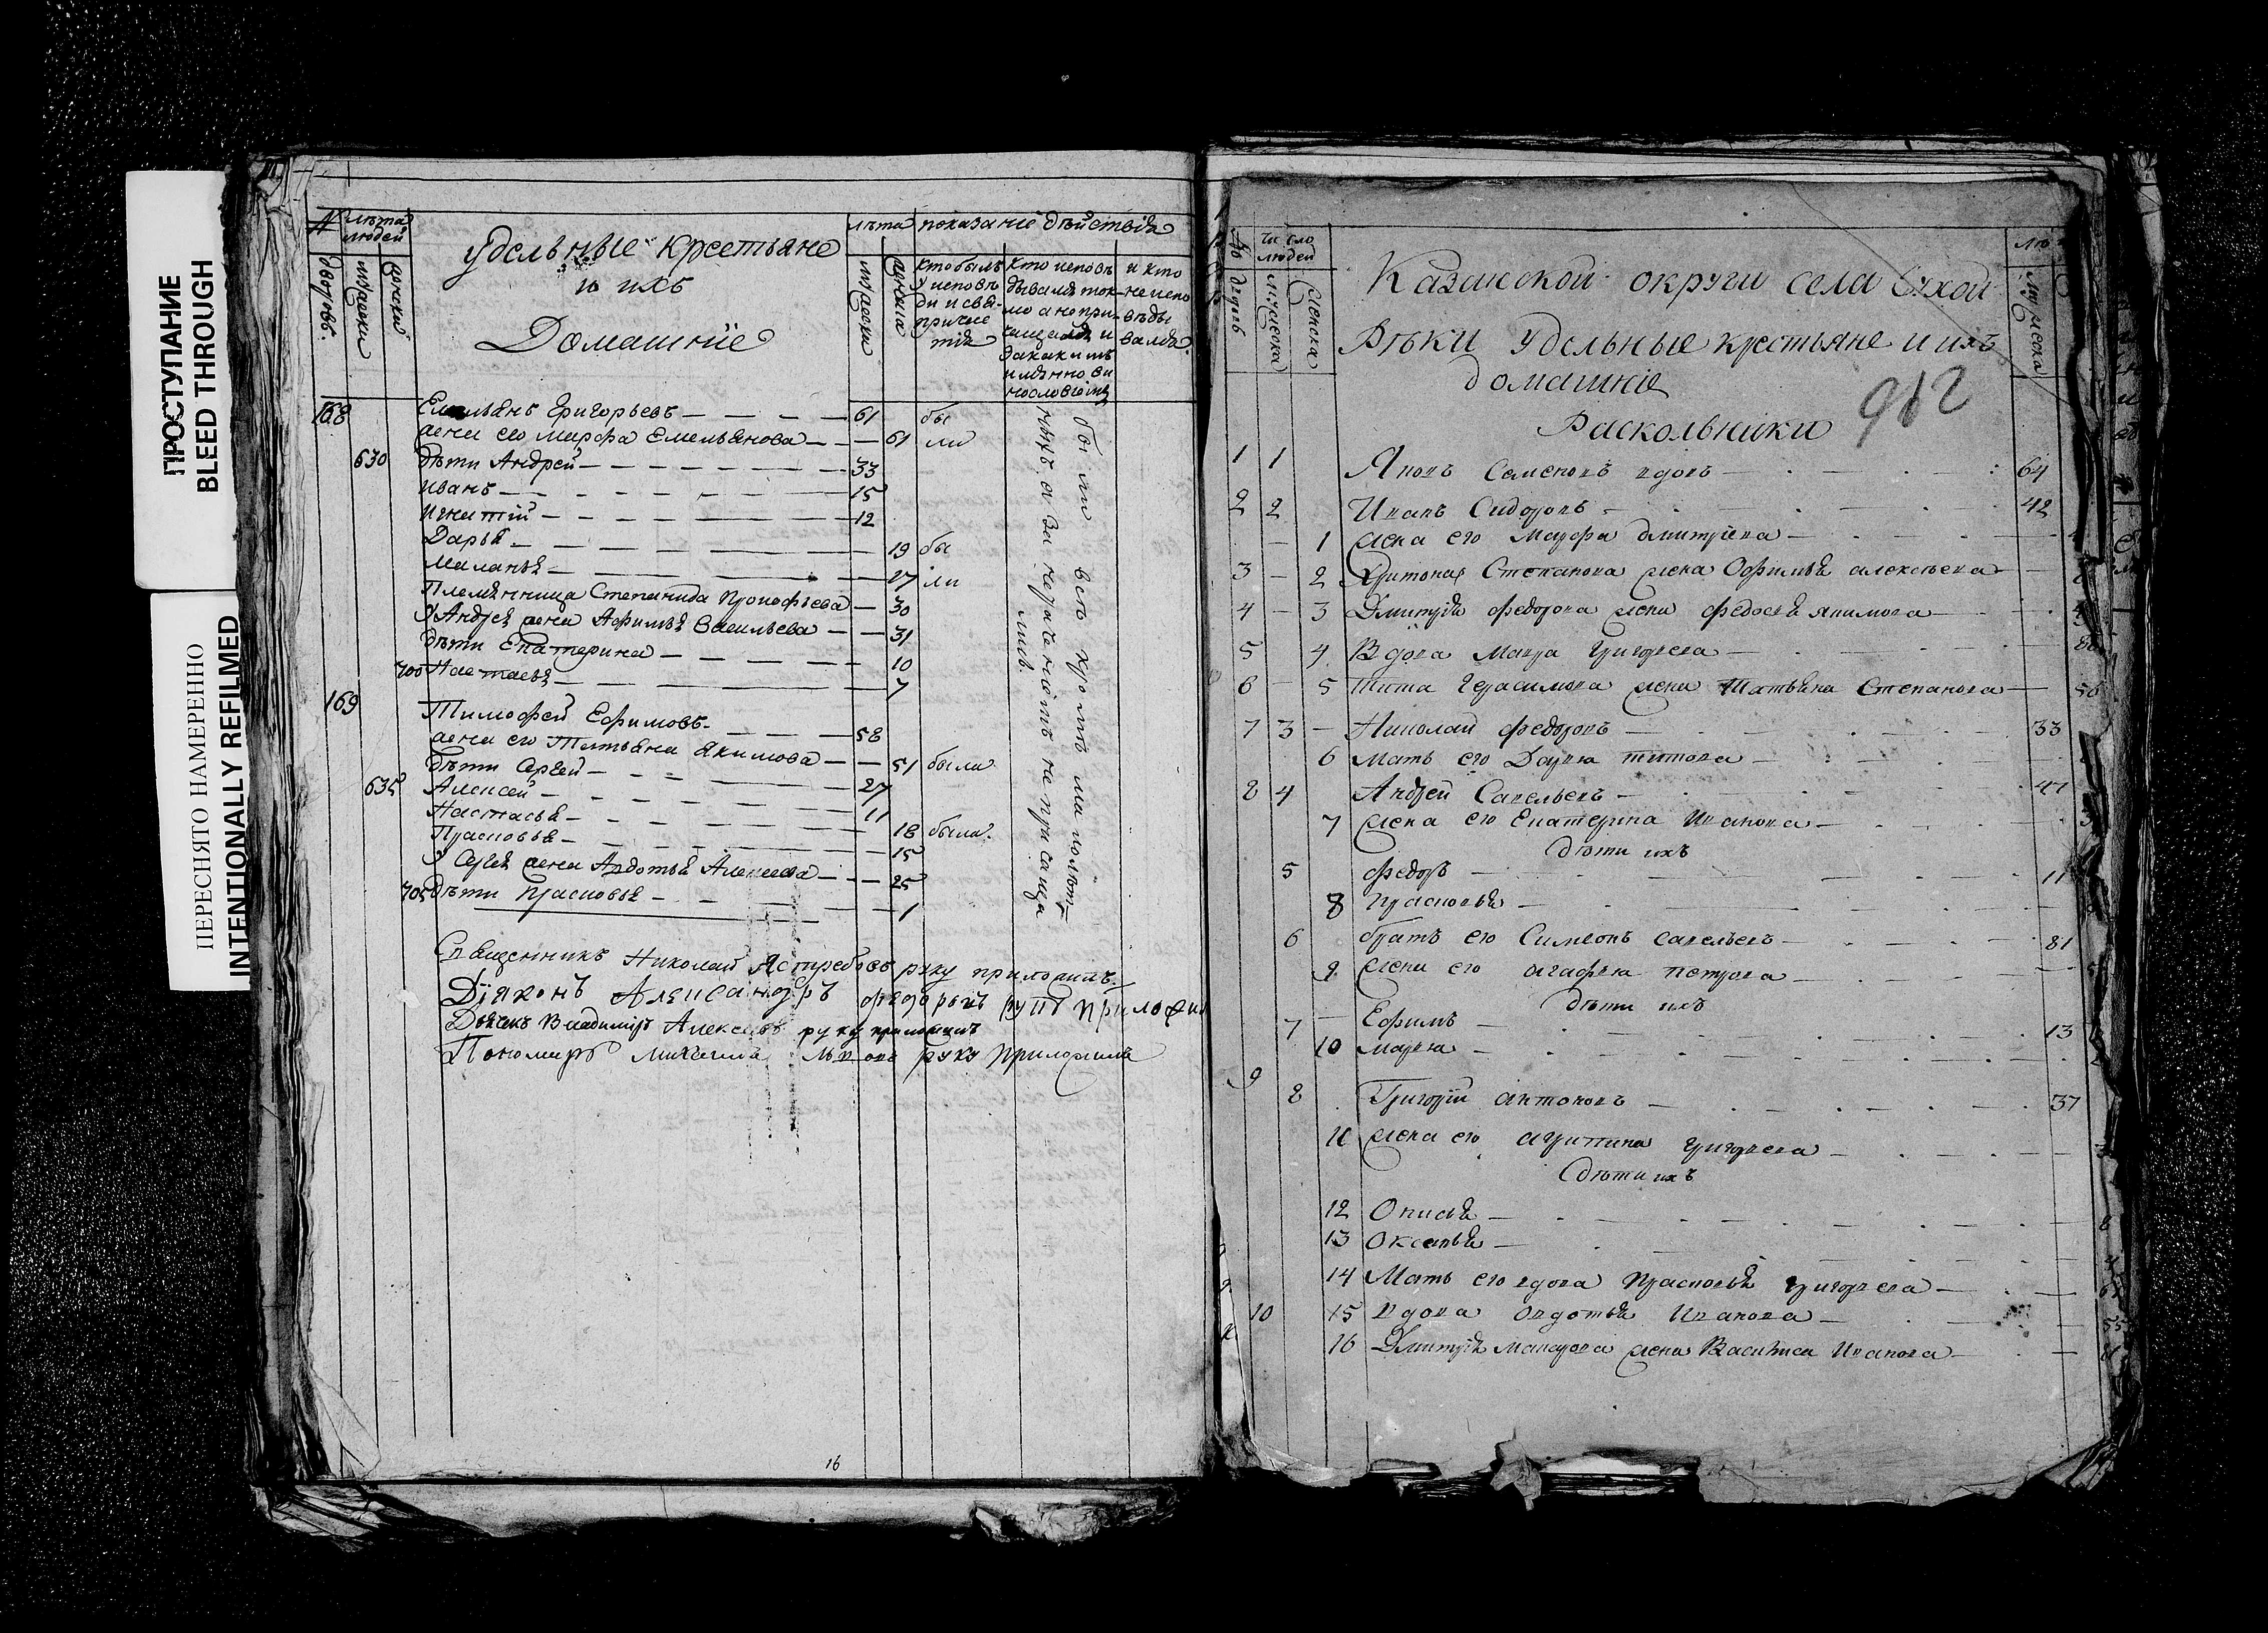 ПРОСТУПАНИЕ
BLEED THROUGH
ПЕРЕСНЯТО НАМЕРЕННО
INTENTIONALLY REFILMED
№ дворовъ.
лѣта людей
мужеска
женска
удельные крестьяне
и ихъ
Домашнїе
лѣта
мужеска
женска
показанїе дѣйствїя
кто былъ у исповеди и св: причастїя
кто исповѣдывался токмо а не причащался и за какимъ именно винословїемъ
и кто не исповѣдывался
168 Григорьевъ 61 бы
жена его Марфа Емельянова 61 ли
630 дѣти Андрей 33
Иванъ 15
Игнатїй 12
Дарья 19 бы
Маланья 27 ли
Племянница Степанида Прокофьева 30
у Андрея жена Афимья Васильева 31
дѣти Екатерина 10
700 Настасья 7
169 Тимофей Ефимовъ 58
жена его Татьяна Якимова 51 была
дѣти Сергей 27
635 Алексей 11
Настасья 18 была
Прасковья 15
у Сергея жена Авдотья Алексеева 25
705 дѣти Прасковья 1
были всѣ кромѣ малолѣт-
нихъ а за нераченїемъ не причаща
лись.
Священникъ Николай Ястребовъ руку приложилъ.
Дїяконъ Александръ руку приложил
Дьячекъ Владимиръ Алексеевъ руку приложилъ
Пономарь Михаила руку приложилъ
16
№ дворовъ
число людей
мужеска
женска
Казанской округи села Сухой
Рѣки удельные крестьяне и ихъ
домашнїе
Раскольники
912
мужеска
1 1 Яковъ Семеновъ вдовъ 64
2 2 Иванъ Сидоровъ 42
1 жена его Марфа Дмитрїева
3 2 Харитона Степанова жена Офимья алексѣева
4 3 Дмитрїя федорова жена федосья якимова
5 4 Вдова Мавра григорьева
6 5 Тита Герасимова жена Татьяна Степанова 56
7 3 Николай федоровъ 33
6 мать его Дарья титова
8 4 Андрей Савельевъ 47
7 жена его Екатерина Иванова
дѣти ихъ
5 федоръ 11
8 Прасковья
6 братъ его Симеонъ савельевъ 81
9 жена его агафья петрова
дѣти ихъ
7 Ефимъ 13
10 марья
9 8 Григорїй антоновъ 37
11 жена его агрипина григорьева
дѣти ихъ
12 Онисья 8
13 Оксинья
14 Мать его вдова Прасковья григорьева
10 15 вдова овдотья Иванова 55
16 Дмитрїя макарова жена Василиса Иванова